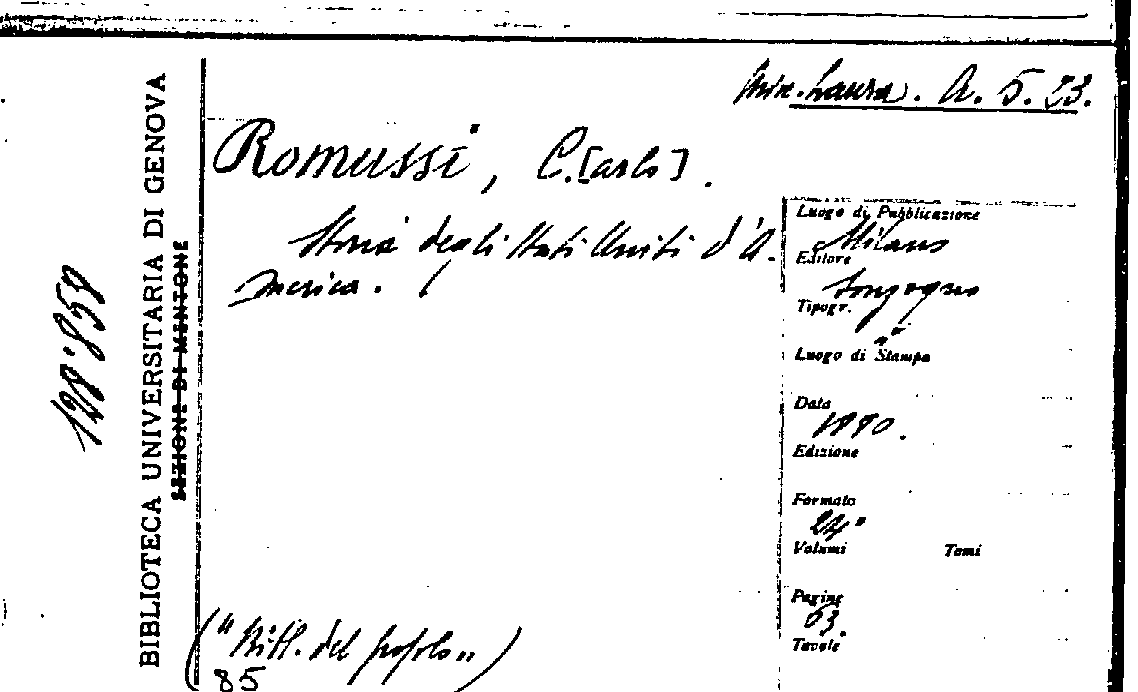 Mix. Laura. A. 5. 23.
Romussi, C.[arlo].
Storia degli Stati Uniti d'A-
merica.
("Bibl. del popolo"
85)
Luogo di Pubblicazione
Milano
Editore
Sonzogno
Tipogr.
"
Luogo di Stampa
Data
1880.
Edizione
Formato
24°
Volumi Tomi
Pagine
63
Tavole
BIBLIOTECA UNIVERSITARIA DI GENOVA
SEZIONE DI MENTONE
128.858